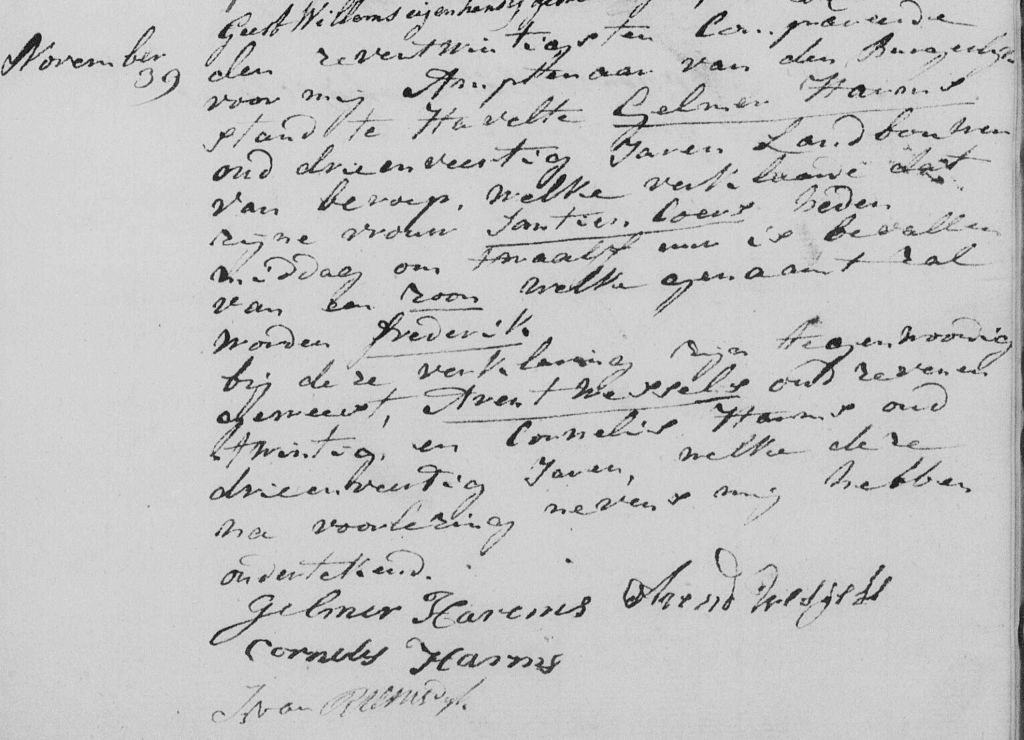 Geert Willems eigenhandig
November
39
den zeventwintigsten Compareerde
voor mij Amptenaar van den Burgerlijke
stand te Havelte Gelmer Harms
oud drieenveertig Jaren Landbouwer
van beroep, welke verklaarde dat
zijne vrouw Jantien Coers heden
middag om twaalf uur is bevallen
van een zoon welke genaamt zal
worden frederik
bij deze verklaring zijn tegenwoordig
geweest, Arent Wessels oud zevenen
twintig, en Cornelis Harms oud
drieenveertig Jaren, welke deze
na voorlezing nevens mij hebben
ondertekend.
Gelmer Harems Arend Wessels
Cornelis Harms
J van